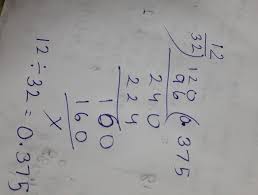 12
32
32) 120 (.375
96
240
224
160
160
X
12 ÷ 32 = 0.375